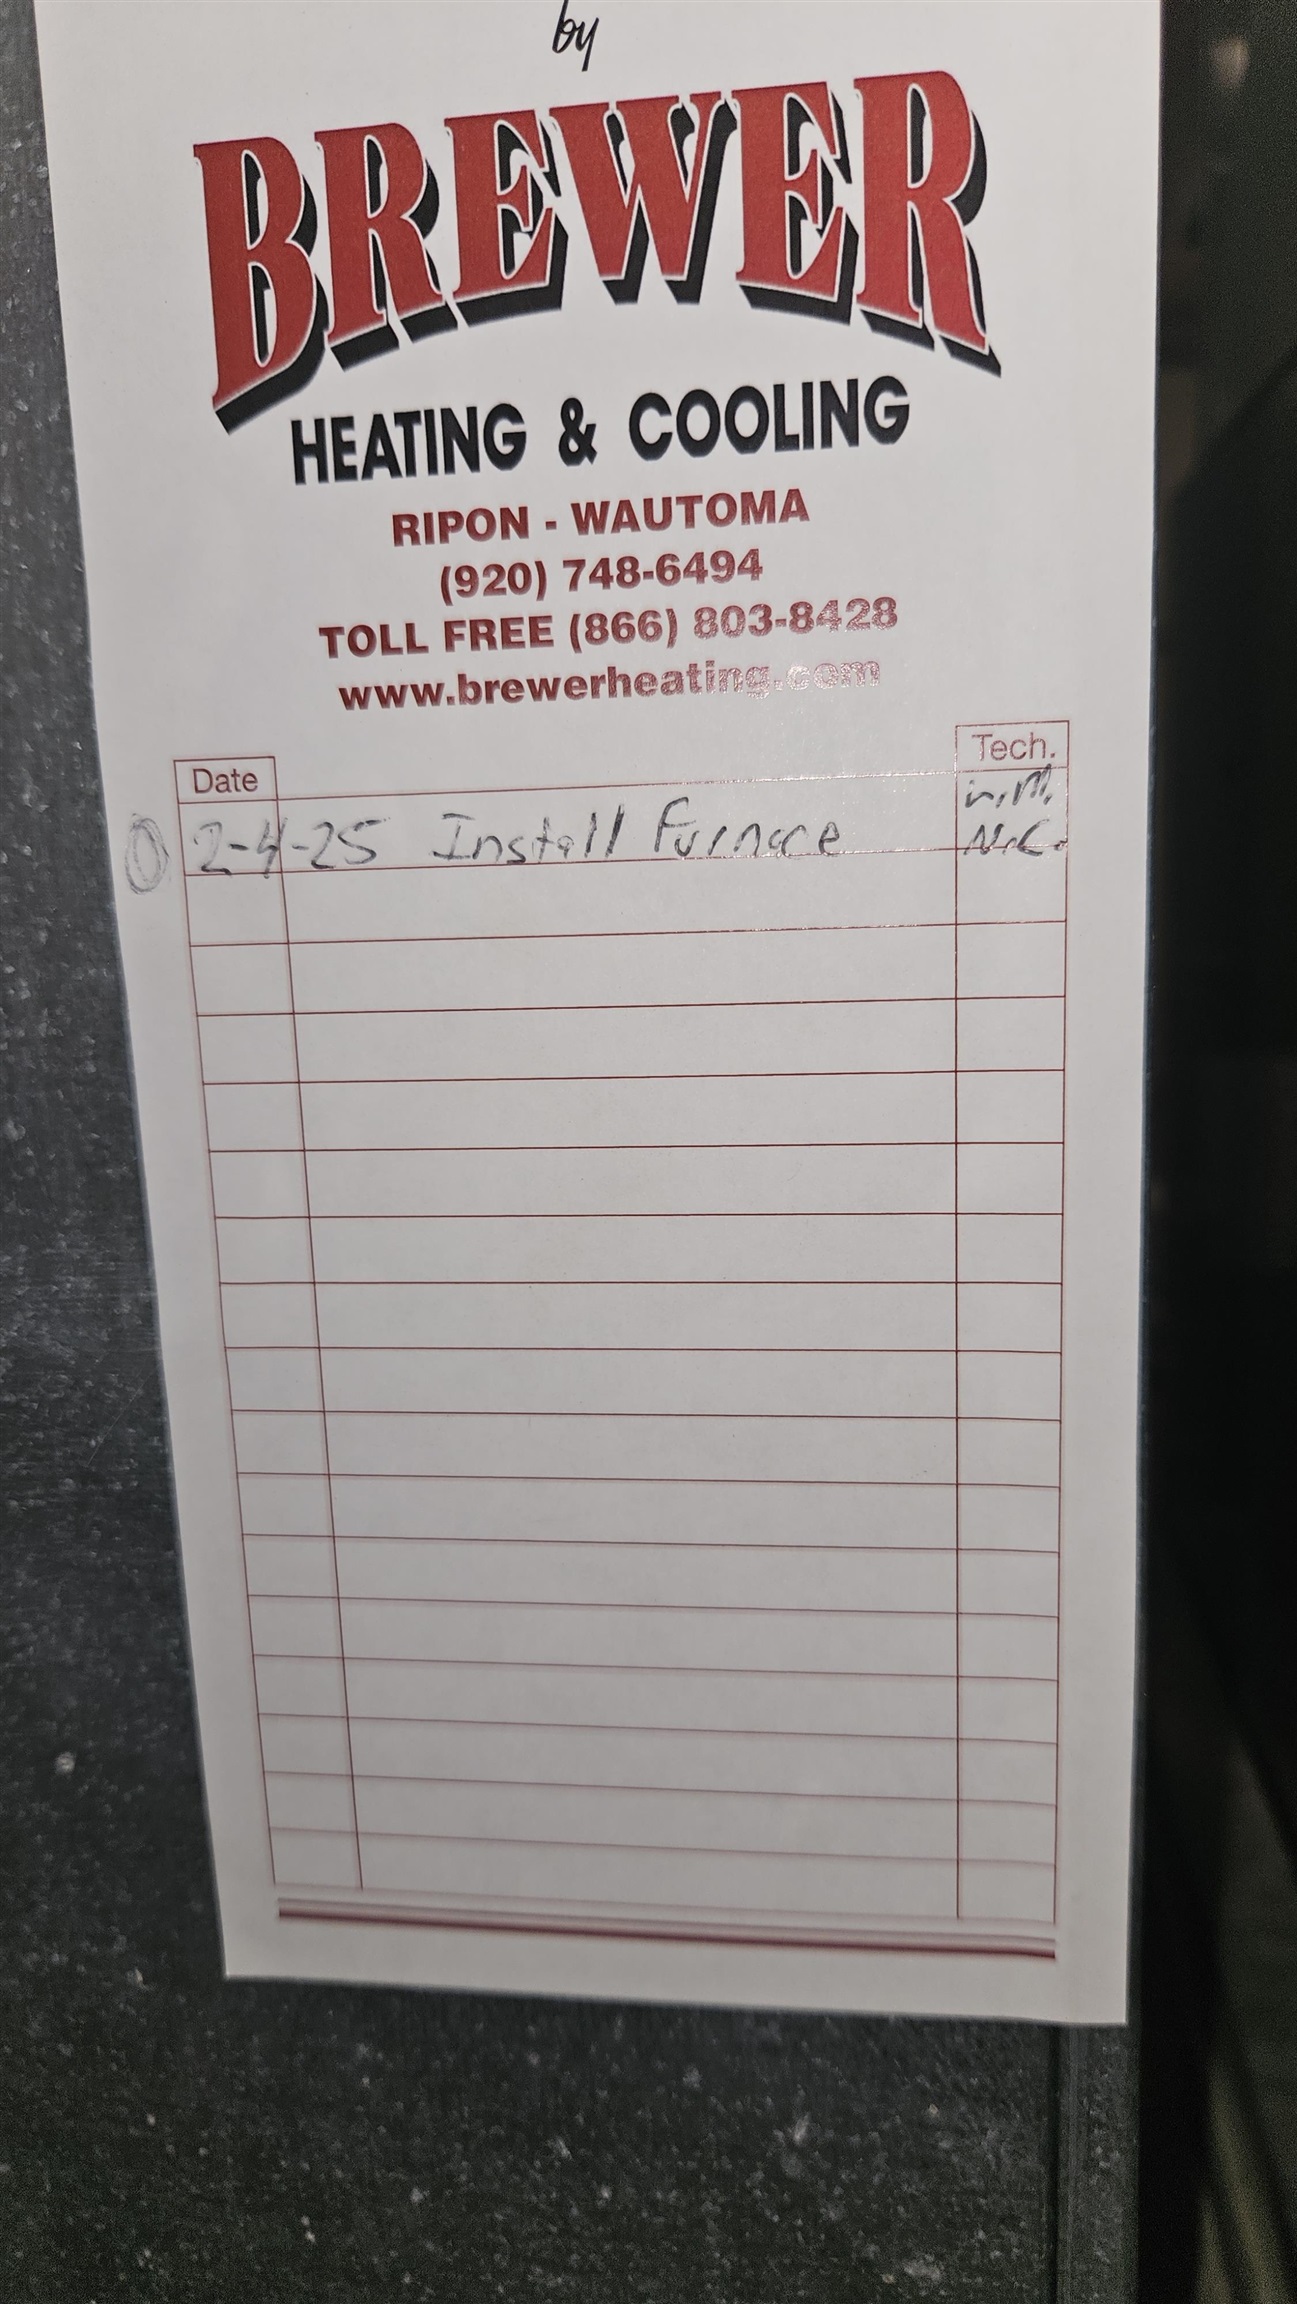 by
BREWER
HEATING & COOLING
RIPON - WAUTOMA
(920) 748-6494
TOLL FREE (866) 803-8428
www.brewerheating.com
Date
Tech.
2-4-25 Install Furnace
N.C.